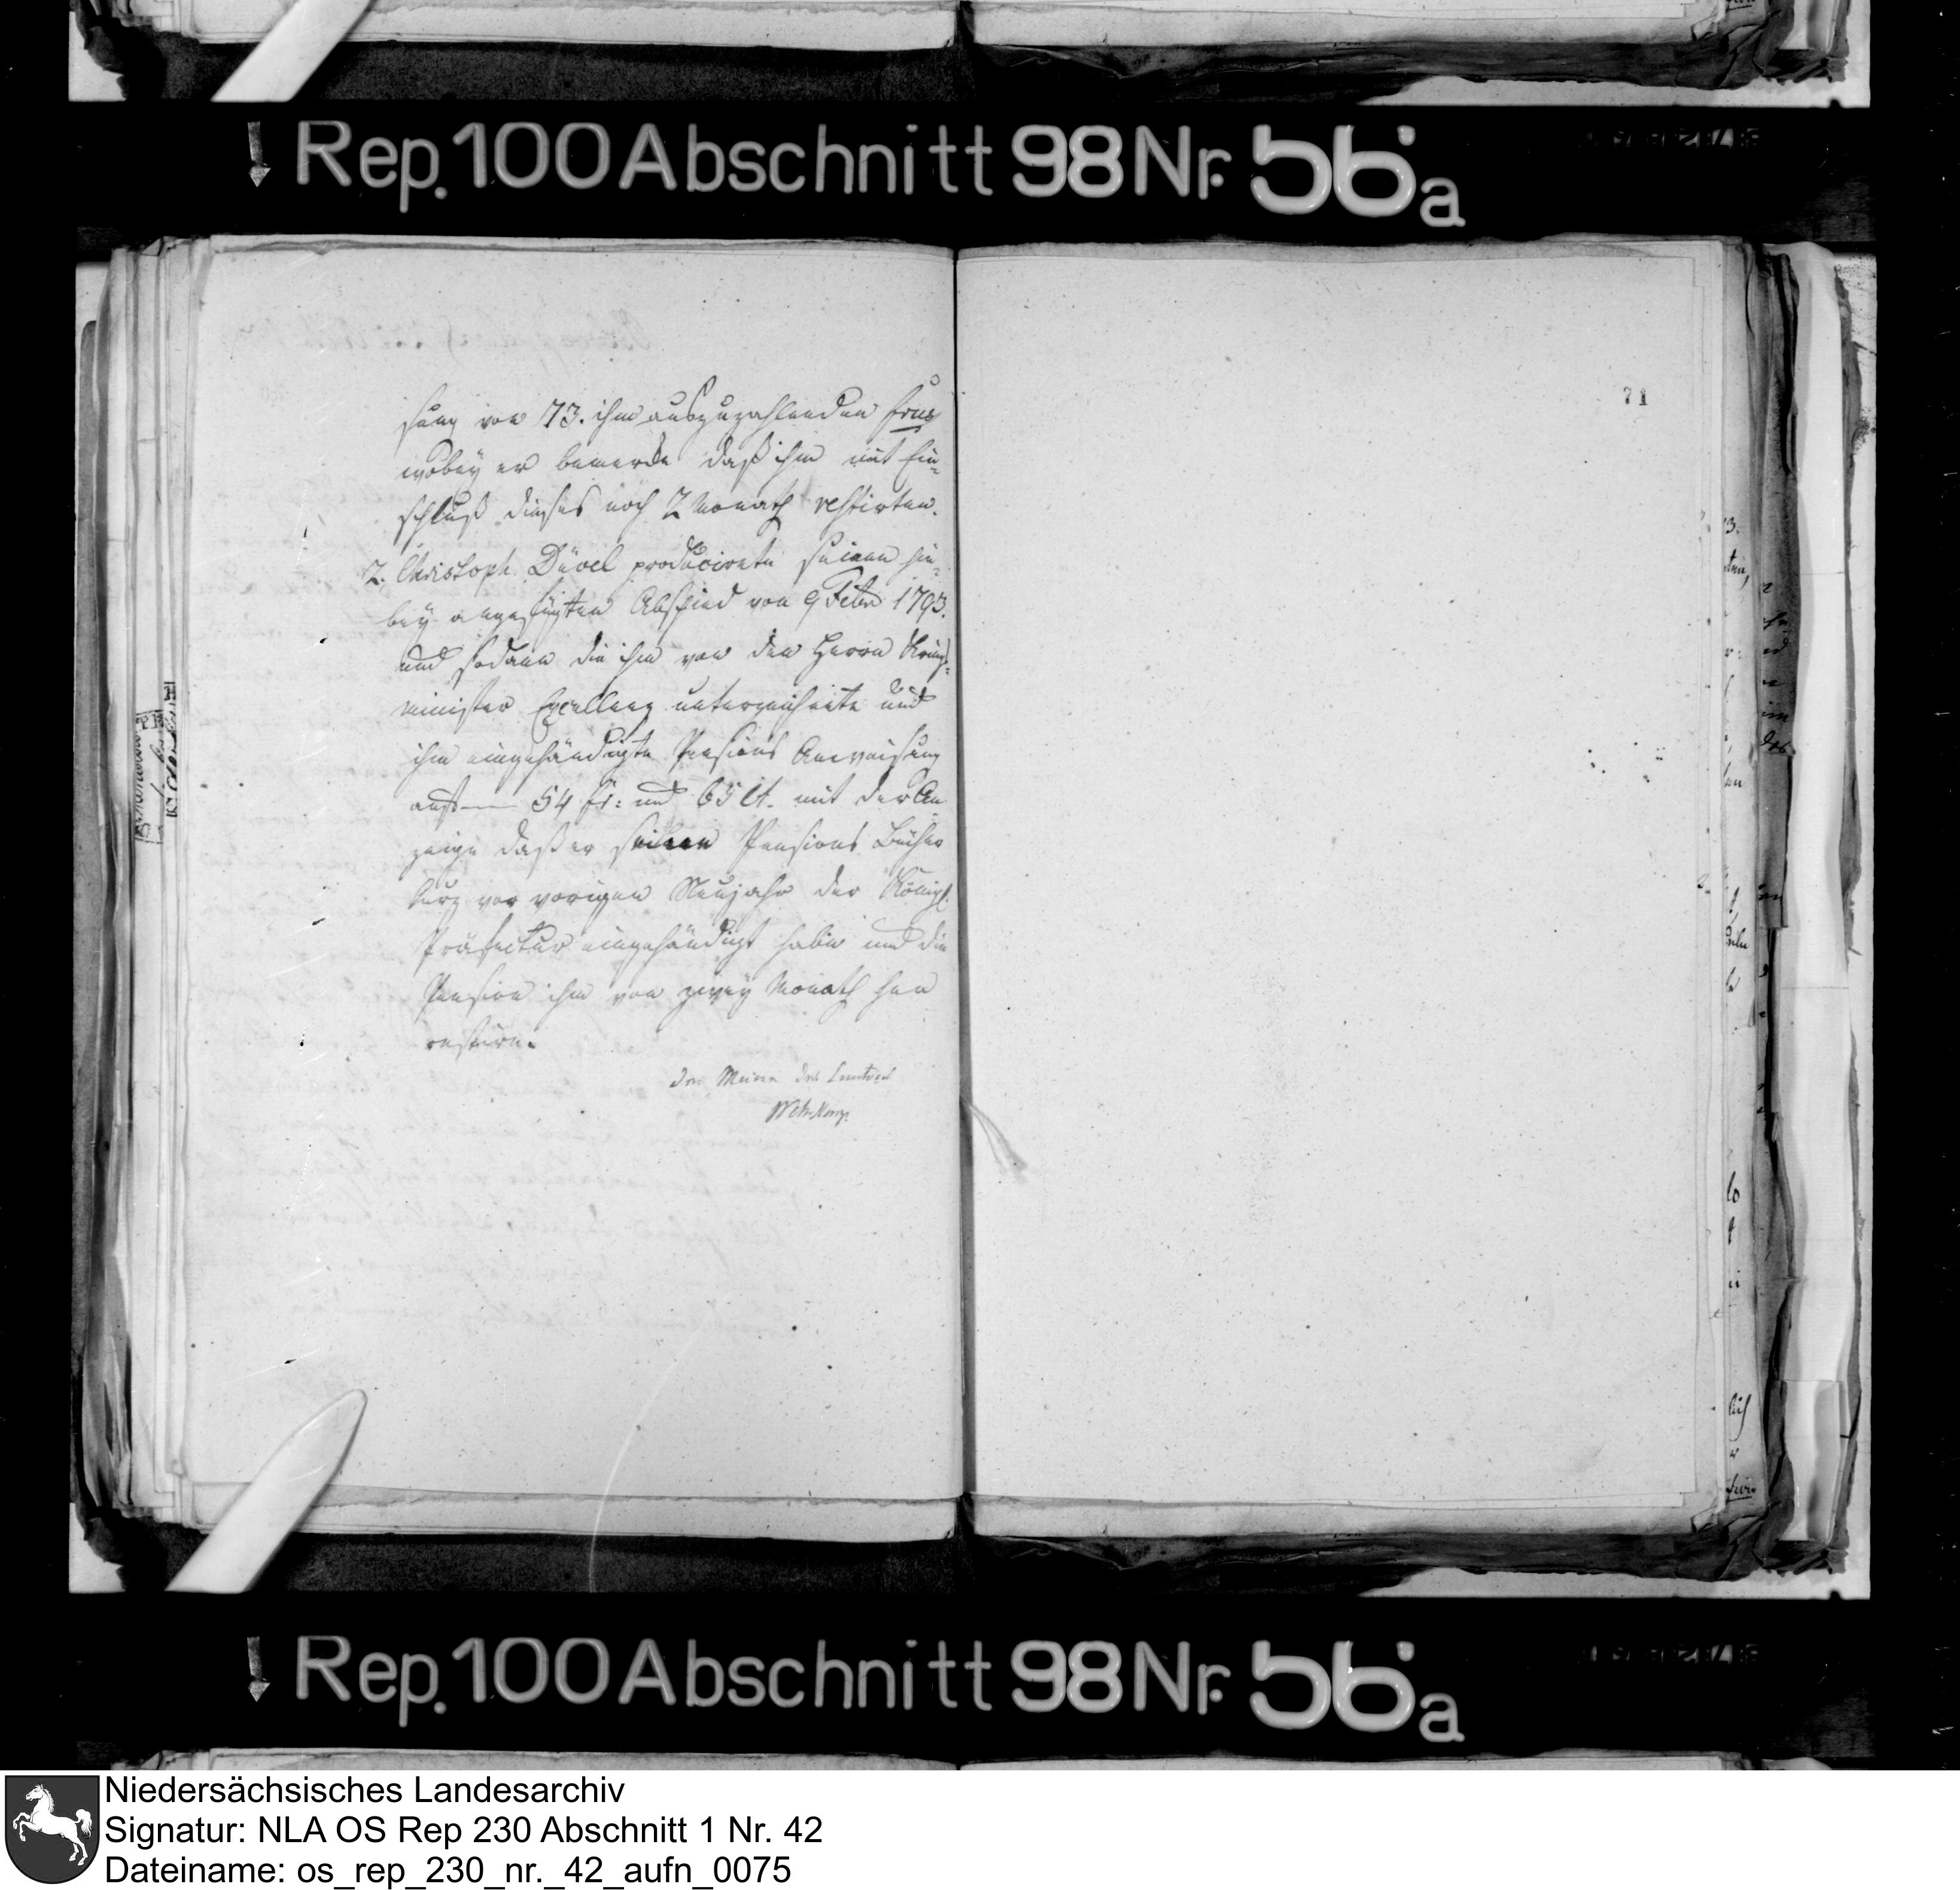 Rep. 100 Abschnitt 98 Nr. 56a
71
sung von 73. ihm auszuzahlenden frus
wobey er bemerke daß ihm mit Ein-
schluß dieses noch 2 Monath restirten.
2. Christoph Düvel producirete seinen hie-
bey angefügten Abschied von 9 Febr 1793.
und sodann die ihm von den Herrn Kriegs-
minister Excellenz unterzeichnete und
ihm eingehändigte Pensions Anweisung
auf 54 fr: und 65 Ct. mit der An
zeige daß er seinen Pensions Bücher
kurz vor vorigen Neujahr der Königl.
Präfectur eingehändigt habe und die
Pension ihm von zwey Monath her
restire.
Der Maire des Cantons
Rep. 100 Abschnitt 98 Nr. 56a
Niedersächsisches Landesarchiv
Signatur: NLA OS Rep 230 Abschnitt 1 Nr. 42
Dateiname: os_rep_230_nr._42_aufn_0075